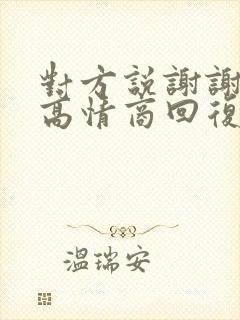 對方説謝謝
高情商回復
温瑞安